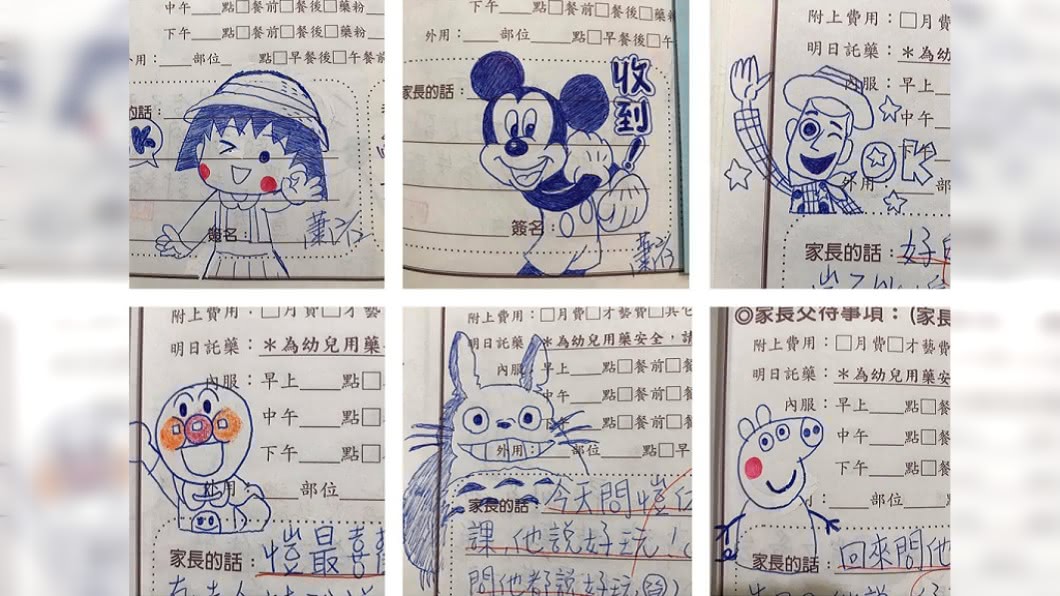 中午____點□餐前□餐後□藥粉
下午____點□餐前□餐後□藥粉
用：____部位____ 點□早餐後□午餐前
的話：
K
簽名：
下午____點□餐前□餐後□藥
外用：____部位____點□早餐後□午
家長的話：
收到！
簽名：
附上費用：□月費
明日託藥：＊為幼
內服：早上
中午
下午
外用
部
OK
家長的話：好
附上費用：□月費□才藝
明日託藥：＊為幼兒用藥
內服：早上____點□
中午____點□
下午____點□
外用：____部位
家長的話：愷最喜
附上費用：□月費□才藝費□其它
明日託藥：＊為幼兒用藥安全，請
內服：早上____點□餐前□餐
中午____點□餐前□餐
下午____點□餐前□餐
外用：____部位____點□早
家長的話：今天問愷
課，他說好玩！
問他都說好玩
◎家長交待事項：（家長
附上費用：□月費□才藝費
明日託藥：＊為幼兒用藥安
內服：早上____點□餐
中午____點□餐
下午____點□餐
：____部位
家長的話：回來問他